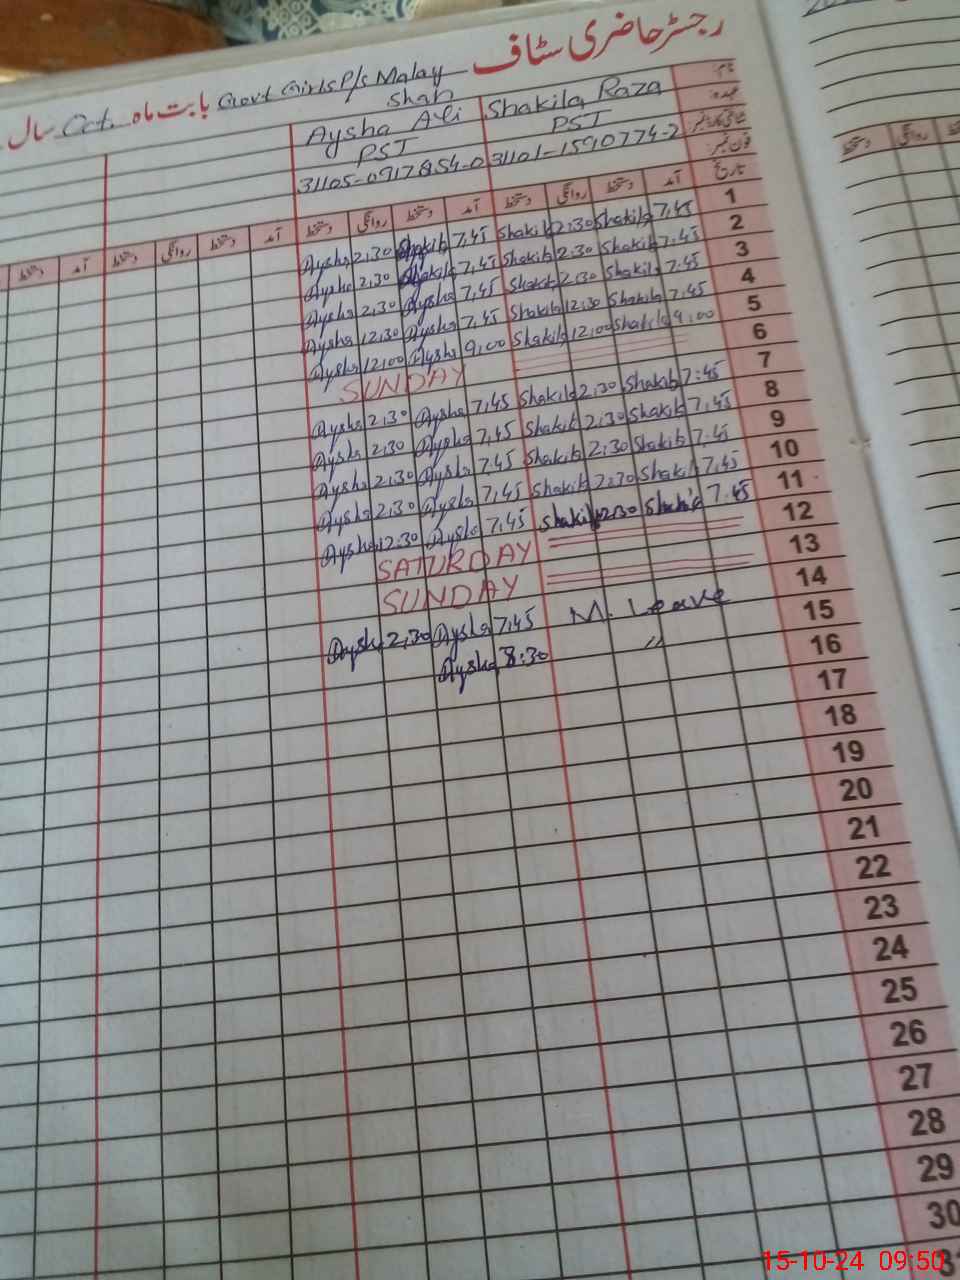 رجسٹر حاضری سٹاف
بابت ماہ Oct. سال Govt Girls P/s Malay Shah
نام Shakila Raza Aysha Ali
عہدہ PST PST
شناختی کارڈ نمبر 31101-1590774-2 31105-0917854-0
فون نمبر
تاریخ آمد دستخط روانگی دستخط آمد دستخط روانگی دستخط آمد دستخط روانگی دستخط آمد دستخط
1 7,45 Shakila 2,30 Shakila 7,45 2,30 Aysha
2 7,45 Shakila 2,30 Shakila 7,45 2,30 Aysha
3 7,45 Shakila 2,30 Shakila 7,45 Aysha 2,30 Aysha
4 7,45 Shakila 12,30 Shakila 7,45 Aysha 12,30 Aysha
5 9,00 Shakila 12,00 Shakila 9,00 Aysha 12,00 Aysha
6 SUNDAY
7 7:45 Shakila 2,30 Shakila 7,45 Aysha 2,30 Aysha
8 7,45 Shakila 2,30 Shakila 7,45 Aysha 2,30 Aysha
9 7,45 Shakila 2,30 Shakila 7,45 Aysha 2,30 Aysha
10 7,45 Shakila 2,30 Shakila 7,45 Aysha 2,30 Aysha
11 7.45 Shakila 12:30 Shakila 7,45 Aysha 12:30 Aysha
12 SATURDAY
13 SUNDAY
14 M. Leave 7,45 Aysha 2,30 Aysha
15 " 8:30 Aysha
16
17
18
19
20
21
22
23
24
25
26
27
28
29
30
15-10-24 09:50